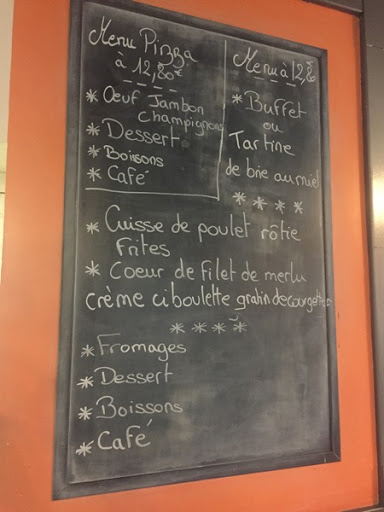 Menu Pizza
à 12,80€
* Oeuf Jambon
champignons
* Dessert
* Boissons
* Café
Menu à 12,80
* Buffet
ou
Tartine
de brie au miel
* * * *
* Cuisse de poulet rôtie
frites
* Coeur de filet de merlu
crème ciboulette gratin de courgettes
* * * *
* Fromages
* Dessert
* Boissons
* Café